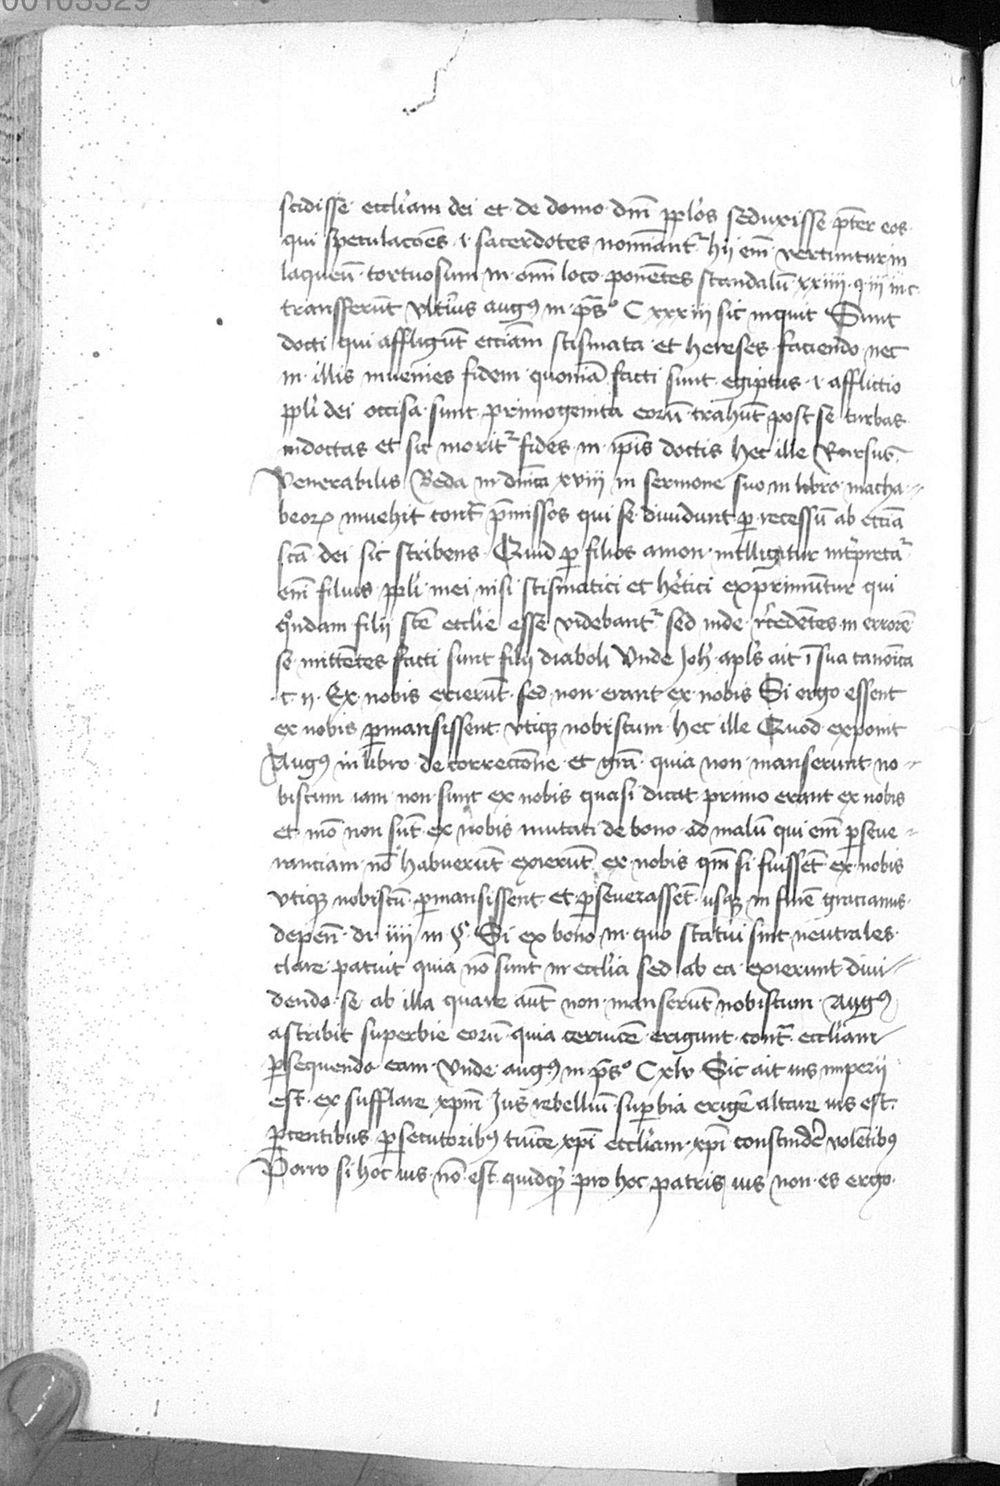 00103329
scidisse eccl'iam dei et de domo dm̄ ppl'os seduxisse p̄ter eos
qui speculacōes ⁊ sacerdotes nomīant᷑ hij em̄ vertuntur in
laqueū tortuosum in om̄i loco ponētes scandalū xxiiii q iii
transferūt vlt'ius aug9 in ps̄o Cxxxiii sic inquit Sunt
docti qui affligūt ecciām scismata et hereses faciendo nec
in illis inuenies fidem quoniā facti sunt egiptus ⁊ afflictio
ppl'i dei occisa sunt primogenita eorū trahūt post se turbas
indoctas et sic morit᷑ fides in ip̄is doctis hec ille Rursus
Venerabilis Beda in dn̄ica xviii in sermone suo in libro macha-
beorꝝ inuehit cont᷑ p̄missos qui se diuidunt ꝑ recessū ab ecciā
scā dei sic scribens Quid ꝑ filios amon intelligitur int'pretat᷑
em̄ filius ppl'i mei nisi scismatici et h'etici exprimūtur qui
qͦndam filij scē eccl'ie esse videbant᷑ sed inde r'cedētes in errorē
se mittētes facti sunt filij diaboli Vnde Joh' apl's ait ī sua canoīca
c ii Ex nobis exierūt sed non erant ex nobis Si ergo essent
ex nobis ꝑmansissent vtiqꝫ nobiscum hec ille Quod exponit
Aug9 in libro de correccōne et grā quia non manserunt no-
biscum iam non sunt ex nobis quasi dicat primo erant ex nobis
et mō non sūt ex nobis mutati de bono ad malū qui em̄ ꝑseue-
ranciam nō habuerūt exierūt ex nobis qm̄ si fuissēt ex nobis
vtiqꝫ nobiscū ꝑmansissent et ꝑseuerassēt usqꝫ in finē gracianus
depen̄ di iiii in § Si ex bono in quo statui sint neutrales
clare patuit quia nō sunt in eccl'ia sed ab ea exierunt diui-
dendo se ab illa quare aūt non manserūt nobiscum Aug9
ascribit superbie eorū quia ceruicē erigunt cont᷑ eccl'iam
ꝑsequendo eam Vnde aug9 in ps̄o Cxlv Sic ait ius imperij
est ex sufflare xpm̄ Jus rebelliū suꝑbia erigē altare ius est
ꝑcentibus ꝑsecutoribꝫ tuīce xpī eccl'iam xpī conscinde᷑ volētibꝫ
Porro si hoc ius nō est quidqͣꝫ pro hoc patris ius non es ergo